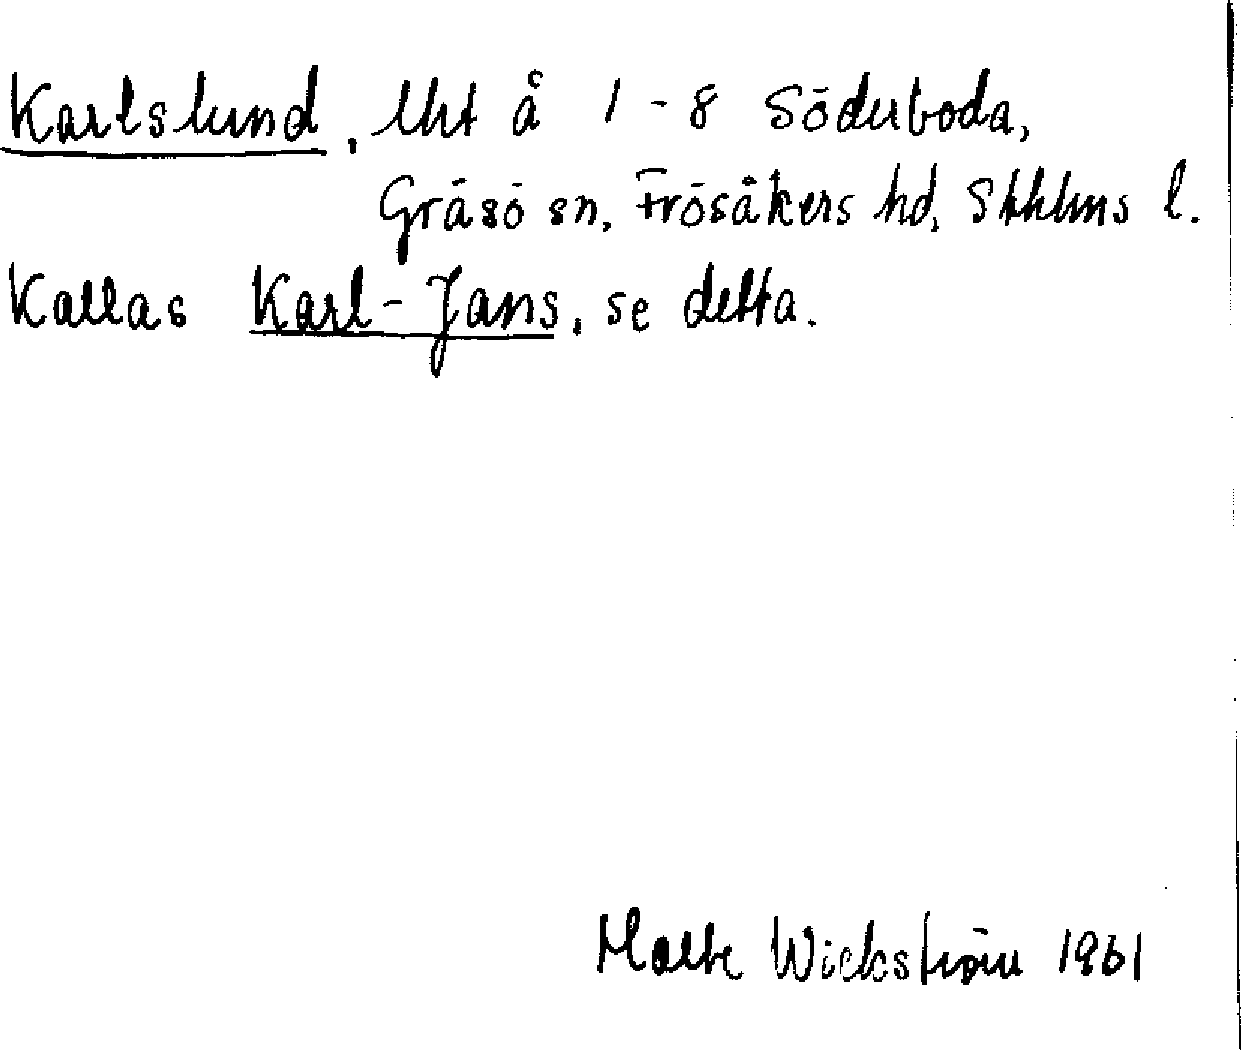 Karlslund, lht å 1-8 Söderboda,
Gräsö sn, Frösåkers hd, Sthlms l.
Kallas Karl-Jans, se detta.
Malte Wickström 1961